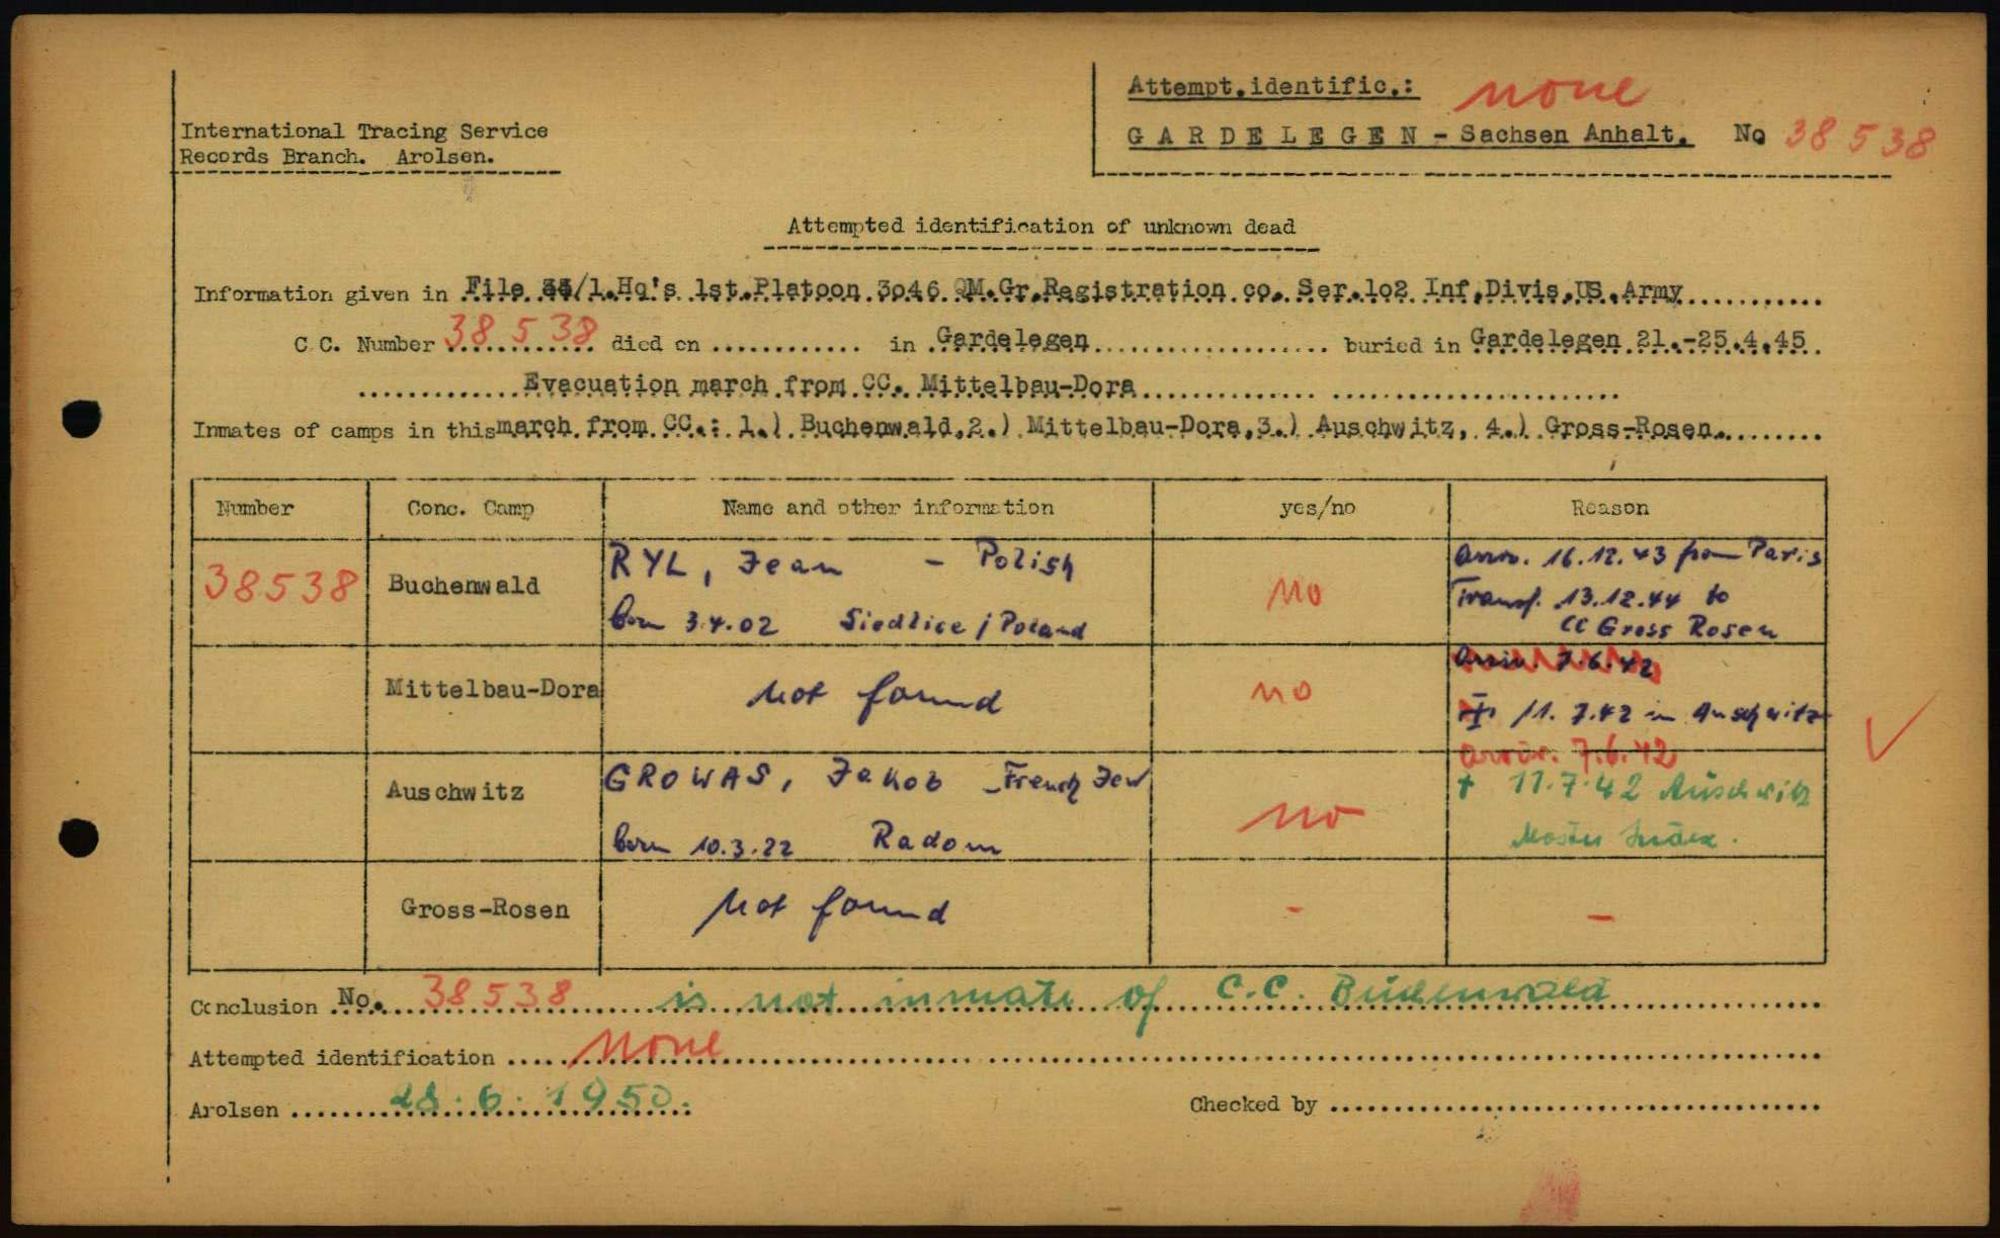 Attempt.identific.: none
International Tracing Service
Records Branch. Arolsen.
GARDELEGEN - Sachsen Anhalt. No 38538
Attempted identification of unknown dead
Information given in File /1.Hq's 1st.Platoon 3o46 QM.Gr.Registration co. Ser.1o2 Inf.Divis.US.Army
C.C. Number 38538 died on ............ in Gardelegen buried in Gardelegen 21.-25.4.45
Evacuation march from CC. Mittelbau-Dora
Inmates of camps in this march from CC.: 1.) Buchenwald,2.) Mittelbau-Dora,3.) Auschwitz, 4.) Gross-Rosen.
Number Conc. Camp Name and other information yes/no Reason
38538 Buchenwald RYL, Jean - Polish no Arriv. 16.12.43 from Paris
born 3.4.02 Siedlice / Poland Transf. 13.12.44 to
CC Gross Rosen
Arriv. 7.6.42
Mittelbau-Dora Not found no
11.7.42 in Auschwitz
Arriv. 7.6.42
Auschwitz GROWAS, Jakob - French Jew no † 11.7.42 Auschwitz
born 10.3.22 Radom Master Index.
Gross-Rosen Not found - -
Conclusion No. 38538 is not inmate of C.C. Buchenwald
Attempted identification none
Arolsen 28.6.1950.
Checked by